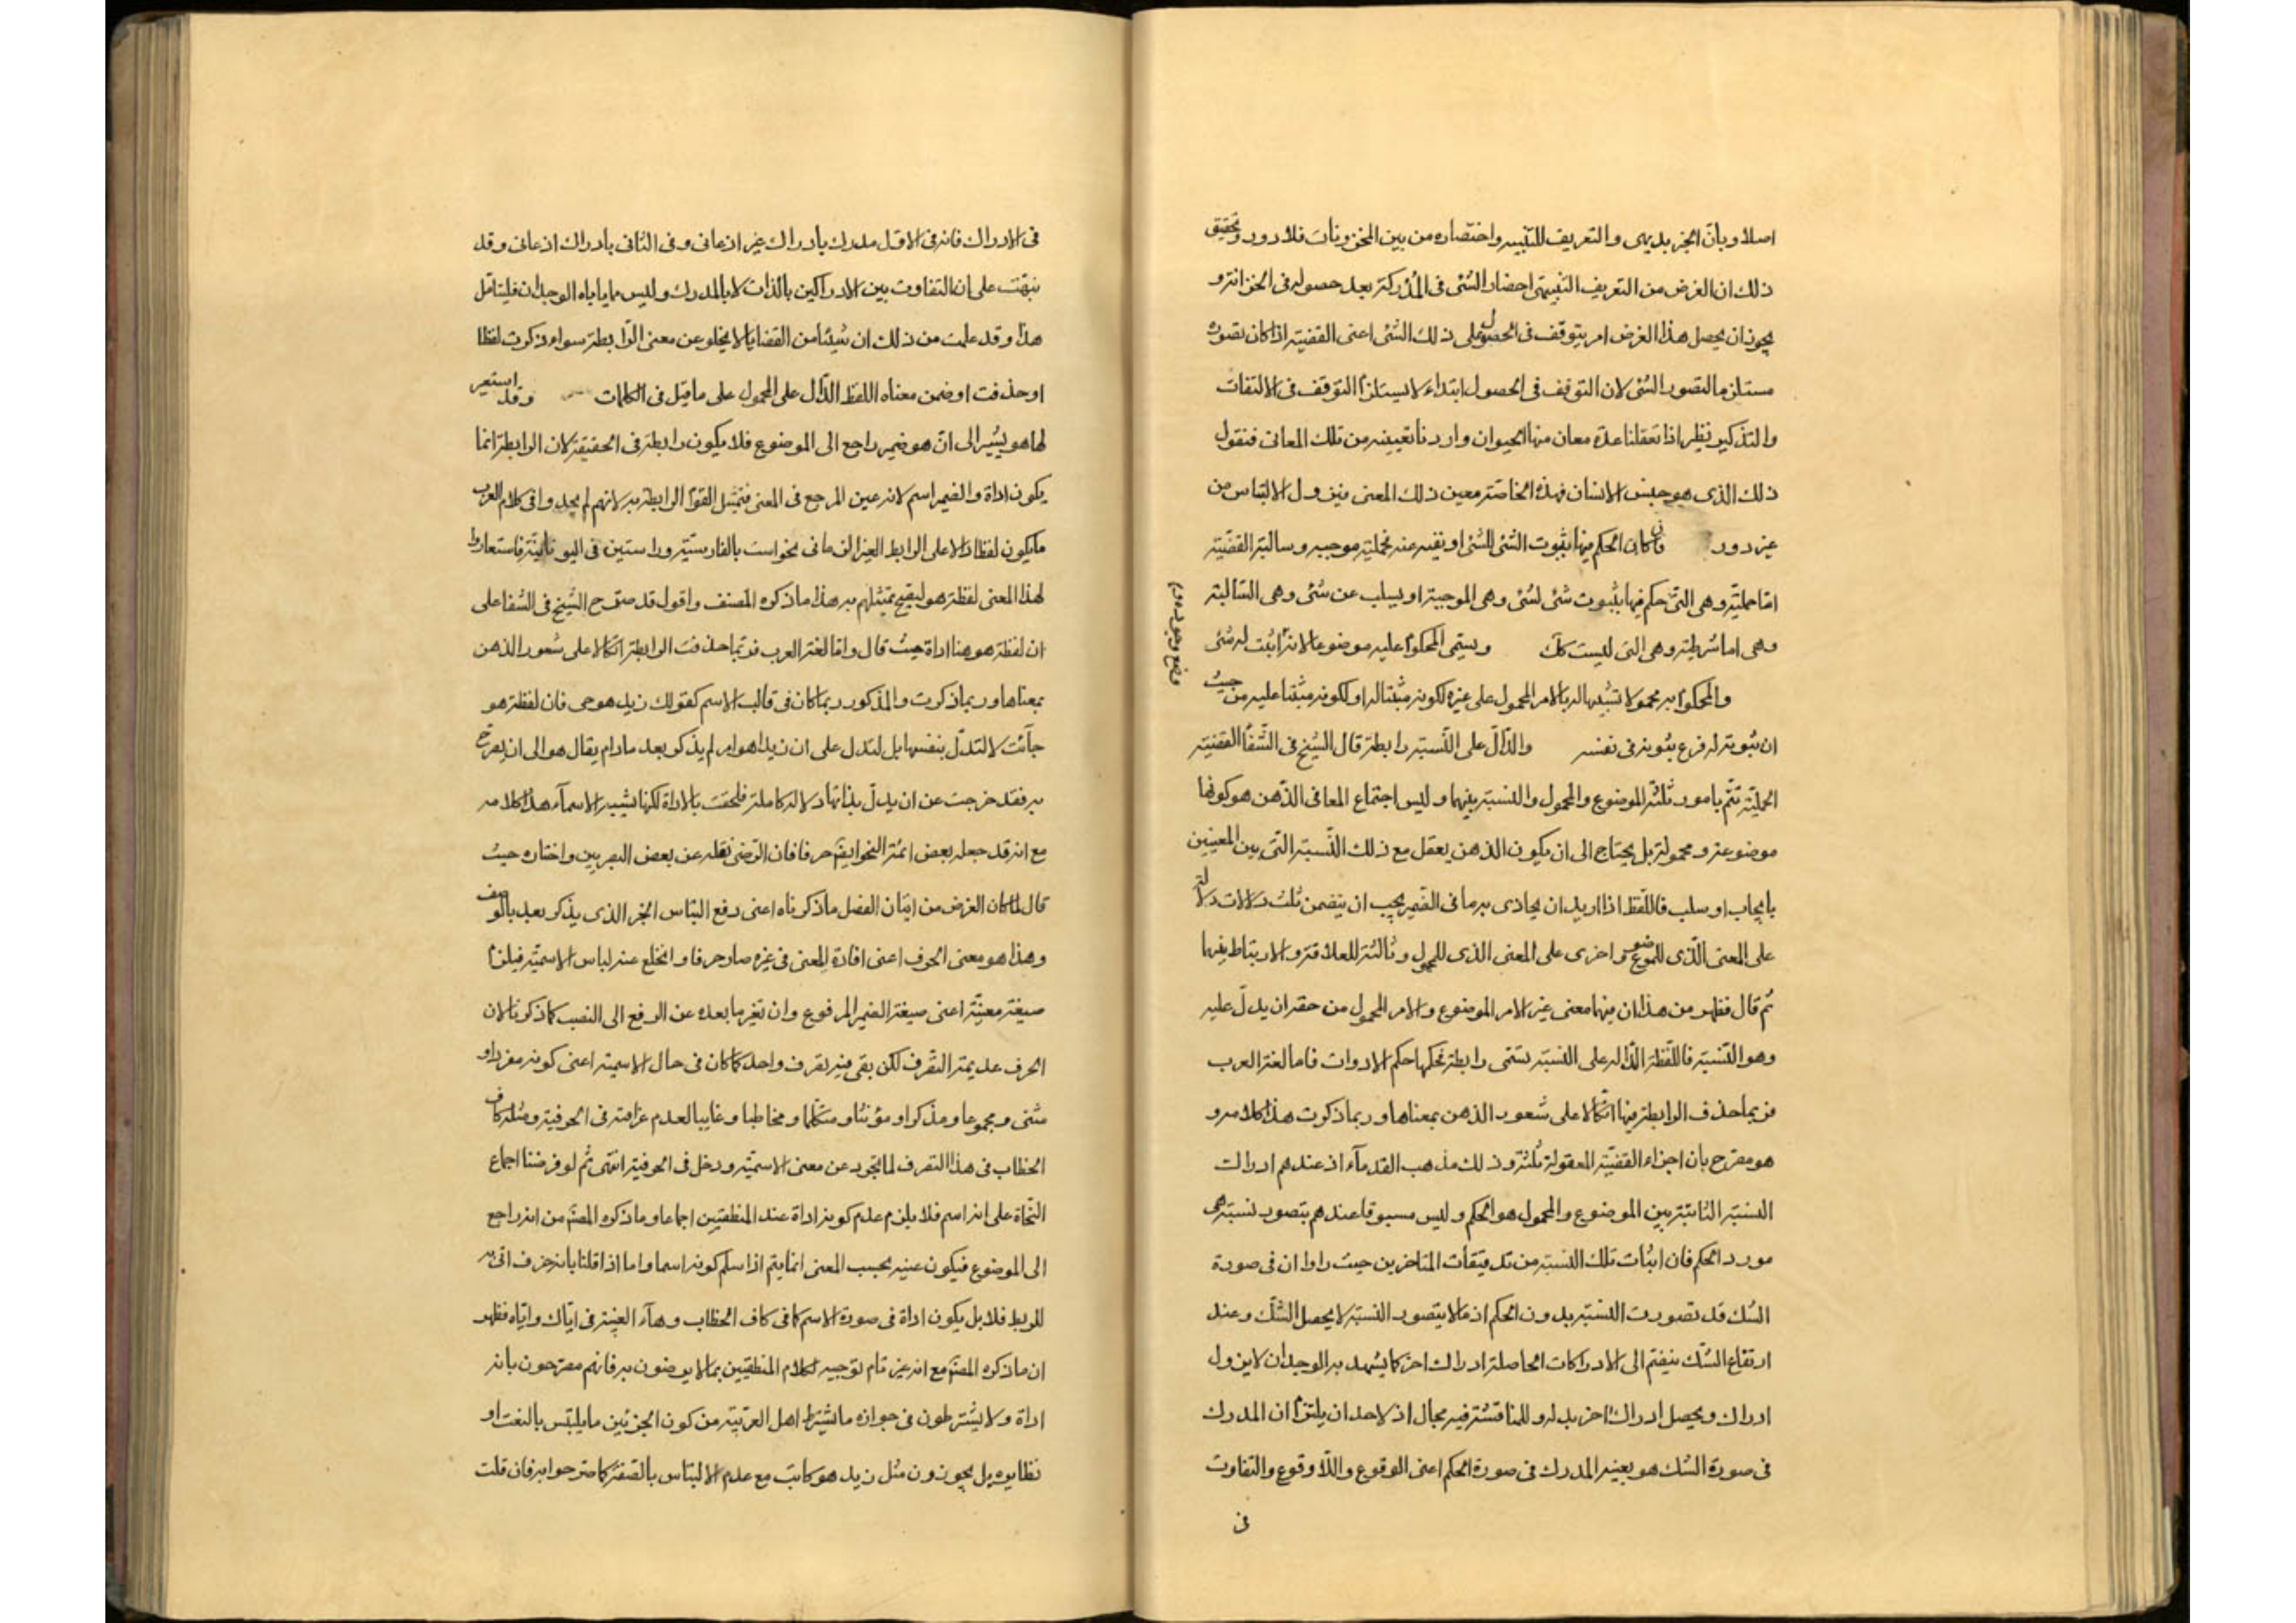 اصلا وبان الخبر بديهى والتعريف للتنبيه واختصاره من بين المخزونات فلا دور وتحقيق
ذلك ان الغرض من التعريف التنبيهى احضار الشئ فى المدركة بعد حصوله فى الخزانة و
يجوز ان يحصل هذا الغرض امر يتوقف فى الحصول على ذلك الشئ اعنى القضية اذا كان تصوره
مستلزما لتصور الشئ لان التوقف فى الحصول ابتداء لا يستلزم التوقف فى الالتفات
والتذكير نظير اذا تعقلنا عدة معان منها الحيوان واردنا تعيينه من تلك المعانى فنقول
ذلك الذى هو جنس الانسان فهذه الخاصة معين ذلك المعنى فيزول الالتباس من
غير دور فان كان الحكم فيها بثبوت الشئ للشئ او نفيه عنه فحملية موجبه وسالبة القضية
اما حملية وهى التى حكم فيها بثبوت شئ لشئ وهى الموجبة او بسلب عن شئ وهى السالبة
وهى اما شرطية وهى التى ليست كك ويسمى المحكوم عليه موضوعا لانه اثبت له شئ
والمحكوم به محمولا تشبيها له بالامر المحمول على غيره لكونه مثبتا له او لكونه مثبتا عليه من حيث
ان ثبوته له فرع ثبوته فى نفسه والدال على النسبة رابطة قال الشيخ فى الشفا القضية
الحملية تتم بامور ثلثة الموضوع والمحمول والنسبة بينهما وليس اجتماع المعانى الذهن هو كونها
موضوعة ومحمولة بل يحتاج الى ان يكون الذهن يعقل مع ذلك النسبة التى بين المعنيين
بايجاب او سلب فاللفظ اذا اريد ان يحاذى به ما فى الضمير يجب ان يتضمن ثلث دلالات دلالة
على المعنى الذى للموضوع واخرى على المعنى الذى للمحمول وثالثة للعلاقة والارتباط بينهما
ثم قال فظهر من هذا ان فيها معنى غير الامر الموضوع والامر المحمول من حقه ان يدل عليه
وهو النسبة فاللفظة الدالة على النسبة تسمى رابطة فحكمها حكم الادوات فاما لغة العرب
فربما حذف الرابطة فيها اتكالا على شعور الذهن بمعناها وربما ذكرت هذا كلامه و
هو مصرح بان اجزاء القضية المعقولة ثلثة وذلك مذهب القدماء اذ عندهم ادراك
النسبة الثابتة بين الموضوع والمحمول هو الحكم وليس مسبوقا عندهم بتصور نسبة هى
مورد الحكم فان اثبات تلك النسبة من تدقيقات المتاخرين حيث راوا ان فى صورة
الشك قد تصورت النسبة بدون الحكم اذ ما لا يتصور النسبة لا يحصل الشك وعند
ارتفاع الشك ينضم الى الادراكات الحاصلة ادراك اخر كما يشهد به الوجدان لا يزول
ادراك ويحصل ادراك اخر بدله وللمناقشة فيه مجال اذ لاحد ان يلتزم ان المدرك
فى صورة الشك هو بعينه المدرك فى صورة الحكم اعنى الوقوع واللاوقوع والتفاوت
فى
فى الادراك فانه فى الاول مدرك بادراك غير اذعانى وفى الثانى بادراك اذعانى وقد
نبهت على ان التفاوت بين الادراكين بالذات لا بالمدرك وليس مما ياباه الوجدان فليتامل
هذا وقد علمت من ذلك ان شيئا من القضايا لا يخلو عن معنى الرابطة سواء ذكرت لفظا
او حذفت او ضمن معناه اللفظ الدال على المحمول على ما قيل فى الكلمات وقد استعير
لها هو يشير الى ان هو ضمير راجع الى الموضوع فلا يكون رابطة فى الحقيقة لان الرابطة انما
يكون اداة والضمير اسم لانه عين المرجع فى المعنى فتمثيل القوم الرابطة به لانهم لم يجدوا فى كلام العرب
ما يكون لفظا دالا على الرابط الغير الزمانى نحو است بالفارسية واستين فى اليونانية فاستعاروا
لهذا المعنى لفظة هو ليصح تمثيلهم به هذا ما ذكره المصنف واقول قد صرح الشيخ فى الشفا على
ان لفظة هو هنا اداة حيث قال واما لغة العرب فربما حذفت الرابطة اتكالا على شعور الذهن
بمعناها وربما ذكرت والمذكور ربما كان فى قالب الاسم كقولك زيد هو حى فان لفظة هو
جاءت لا لتدل بنفسها بل لتدل على ان زيدا هو امر لم يذكر بعد ما دام يقال هو الى ان يصرح
به فقد خرجت عن ان يدل بذاتها دلالة كاملة فلحقت بالاداة لكنها يشبه الاسماء هذا كلامه
مع انه قد جعله بعض ائمة النحو ايضا حرفا فان الرضى نقله عن بعض البصريين واختاره حيث
قال لما كان الغرض من اتيان الفصل ما ذكرناه اعنى دفع التباس الخبر الذى يذكر بعده بالوصف
وهذا هو معنى الحرف اعنى افادة المعنى فى غيره صار حرفا وانخلع عنه لباس الاسمية فيلزم
صيغة معينة اعنى صيغة الضمير المرفوع وان تغير ما بعده عن الرفع الى النصب كما ذكرنا لان
الحرف عديمة التصرف لكن بقى فيه تصرف واحد كما كان فى حال الاسمية اعنى كونه مفردا و
مثنى ومجموعا ومذكرا ومؤنثا ومتكلما ومخاطبا وغايبا لعدم عراقته فى الحرفية ومثله كاف
الخطاب فى هذا التصرف لما تجرد عن معنى الاسمية ودخل فى الحرفية انتهى ثم لو فرضنا اجماع
النحاة على انه اسم فلا يلزم عدم كونه اداة عند المنطقيين اجماعا وما ذكره المصنف من انه راجع
الى الموضوع فيكون عينه بحسب المعنى انما يتم اذا سلم كونه اسما واما اذا قلنا بانه حرف اتى به
للربط فلا بل يكون اداة فى صورة الاسم كما فى كاف الخطاب وهاء الغيبة فى اياك واياه فظهر
ان ما ذكره المصنف مع انه غير تام توجيه لكلام المنطقيين بما لا يرضون به فانهم مصرحون بانه
اداة ولا يشترطون فى جوازه ما يشترط اهل العربية من كون الجزئين مما يلتبس بالنعت او
نظايره بل يجوزون مثل زيد هو كاتب مع عدم الالتباس بالصفة كما صرحوا به فان قلت